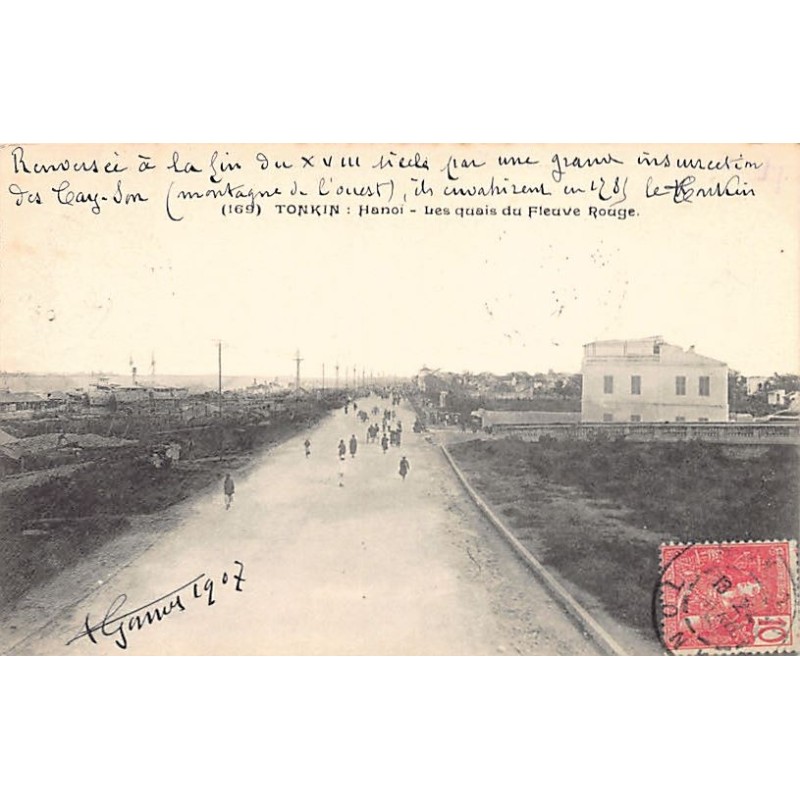 Renversée à la fin du XVIII siècle par une grande insurrection
des Tay-Son (montagne de l'ouest), ils envahirent en 1785 le Tonkin
(169) TONKIN : Hanoï - Les quais du Fleuve Rouge.
1907
10